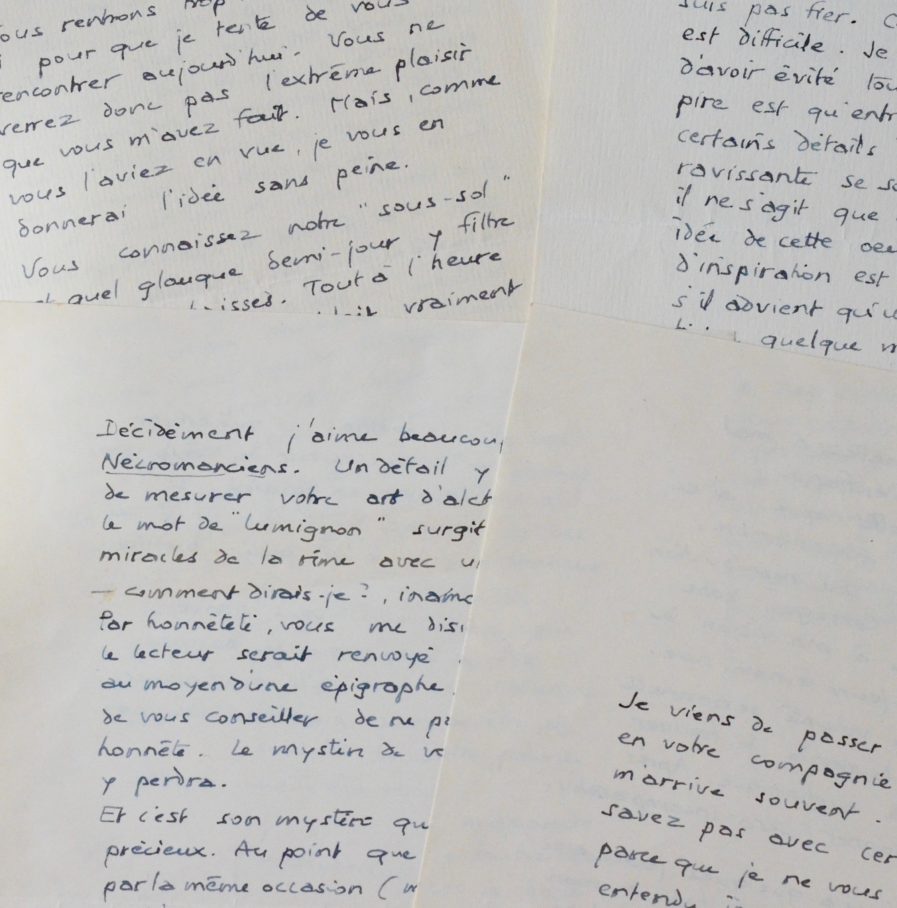 ous rentrons trop
pour que je tente de vous
encontrer aujourd'hui. Vous ne
verrez donc pas l'extrême plaisir
que vous m'avez fait. Mais, comme
vous l'aviez en vue, je vous en
donnerai l'idée sans peine.
Vous connaissez notre "sous-sol"
et quel glauque demi-jour y filtre
Tout à l'heure
vraiment
suis pas fier. C
est difficile. Je
d'avoir évité tou
pire est qu'entr
certains détails
ravissante se s
il ne s'agit que
idée de cette oeu
d'inspiration est
s'il advient qu'u
quelque m
Décidément j'aime beaucou
Nécromanciens. Un détail y
de mesurer votre art d'alch
le mot de "lumignon" surgit
miracles de la rime avec u
– comment dirais-je?, iname
Par honnêteté, vous me disi
le lecteur serait renvoyé
au moyen d'une épigraphe.
de vous conseiller de ne p
honnête. Le mystère de vo
y perdra.
Et c'est son mystère qu
précieux. Au point que
par la même occasion (
Je viens de passer
en votre compagnie
m'arrive souvent.
savez pas avec cer
parce que je ne vous
entendu